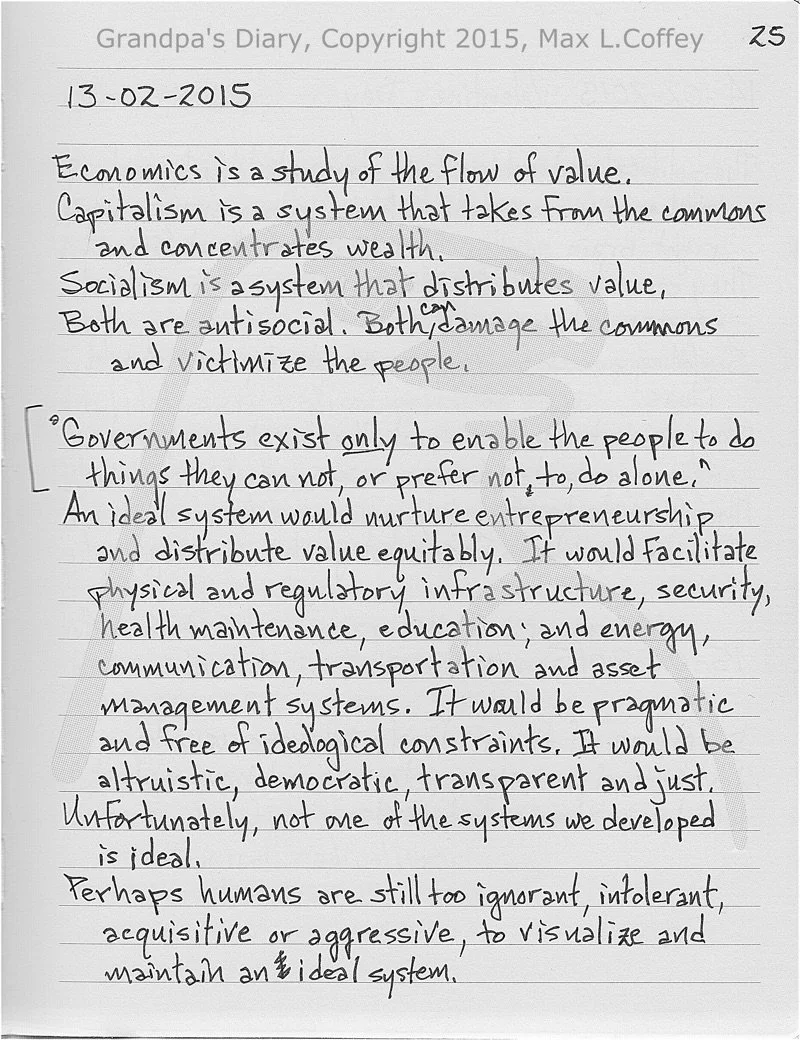 Grandpa's Diary, Copyright 2015, Max L.Coffey 25
13-02-2015
Economics is a study of the flow of value.
Capitalism is a system that takes from the commons
and concentrates wealth.
Socialism is a system that distributes value.
Both are antisocial. Both, can damage the commons
and victimize the people.
"Governments exist only to enable the people to do
things they can not, or prefer not, to, do alone."
An ideal system would nurture entrepreneurship
and distribute value equitably. It would facilitate
physical and regulatory infrastructure, security,
health maintenance, education; and energy,
communication, transportation and asset
management systems. It would be pragmatic
and free of ideological constraints. It would be
altruistic, democratic, transparent and just.
Unfortunately, not one of the systems we developed
is ideal.
Perhaps humans are still too ignorant, intolerant,
acquisitive or aggressive, to visualize and
maintain an ideal system.